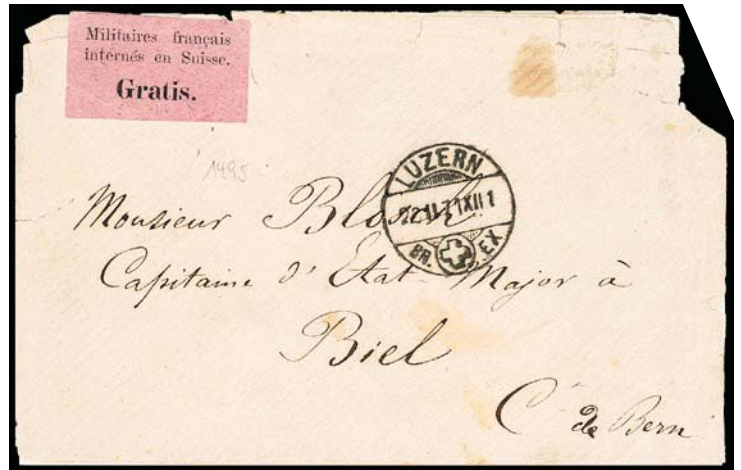 Militaires français
internés en Suisse.
Gratis.
1495
LUZERN
XII 1
BR. EX.
Monsieur
Capitaine d'Etat-Major à
Biel
Cn de Bern